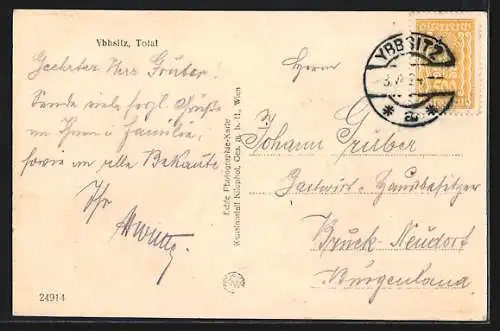 Ybbsitz, Total
Geehrter Herr Gruber!
Sende viele herzl. Grüße
an Ihnen u. Familie,
sowie an alle Bekannte
Ihr
24914
Echte Photographie-Karte
Kunstanstalt Kilophot, Ges. m. b. H., Wien
YBBSITZ
Herrn
Johann Gruber
Gastwirt u. Hausbesitzer
Bruck-Neudorf
Burgenland